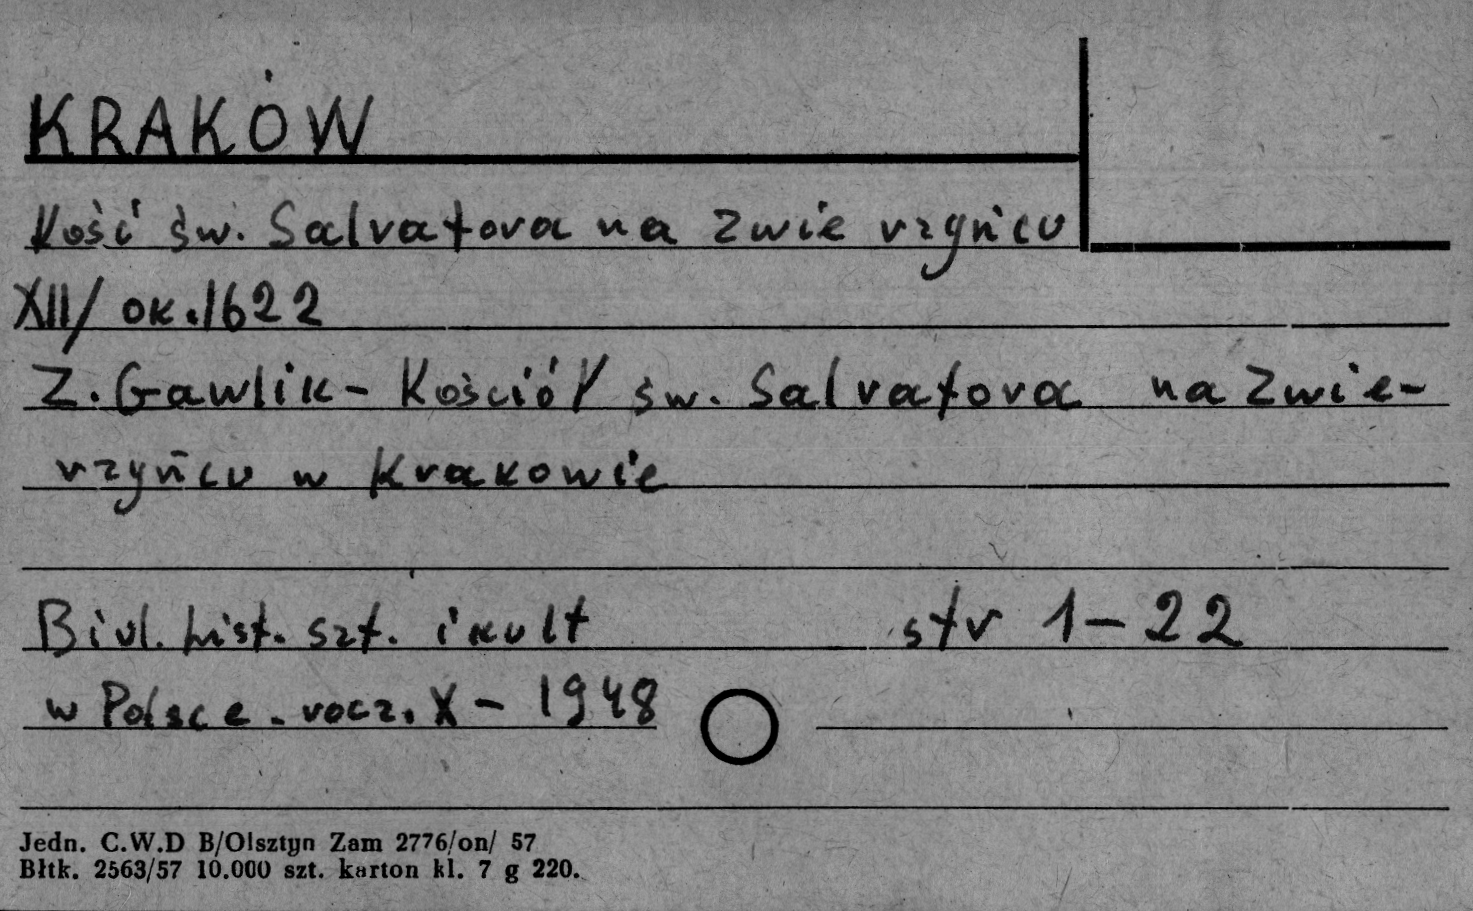 KRAKÓW
Kość św. Salvatora na Zwierzyńcu
XII/ ok. 1622
Z. Gawlik - Kościół św. Salvatora na Zwie-
rzyńcu w Krakowie
Biul. hist. szt. i kult str 1-22
w Polsce. rocz. X - 1948
Jedn. C.W.D B/Olsztyn Zam 2776/on/ 57
Błtk. 2563/57 10.000 szt. karton kl. 7 g 220.